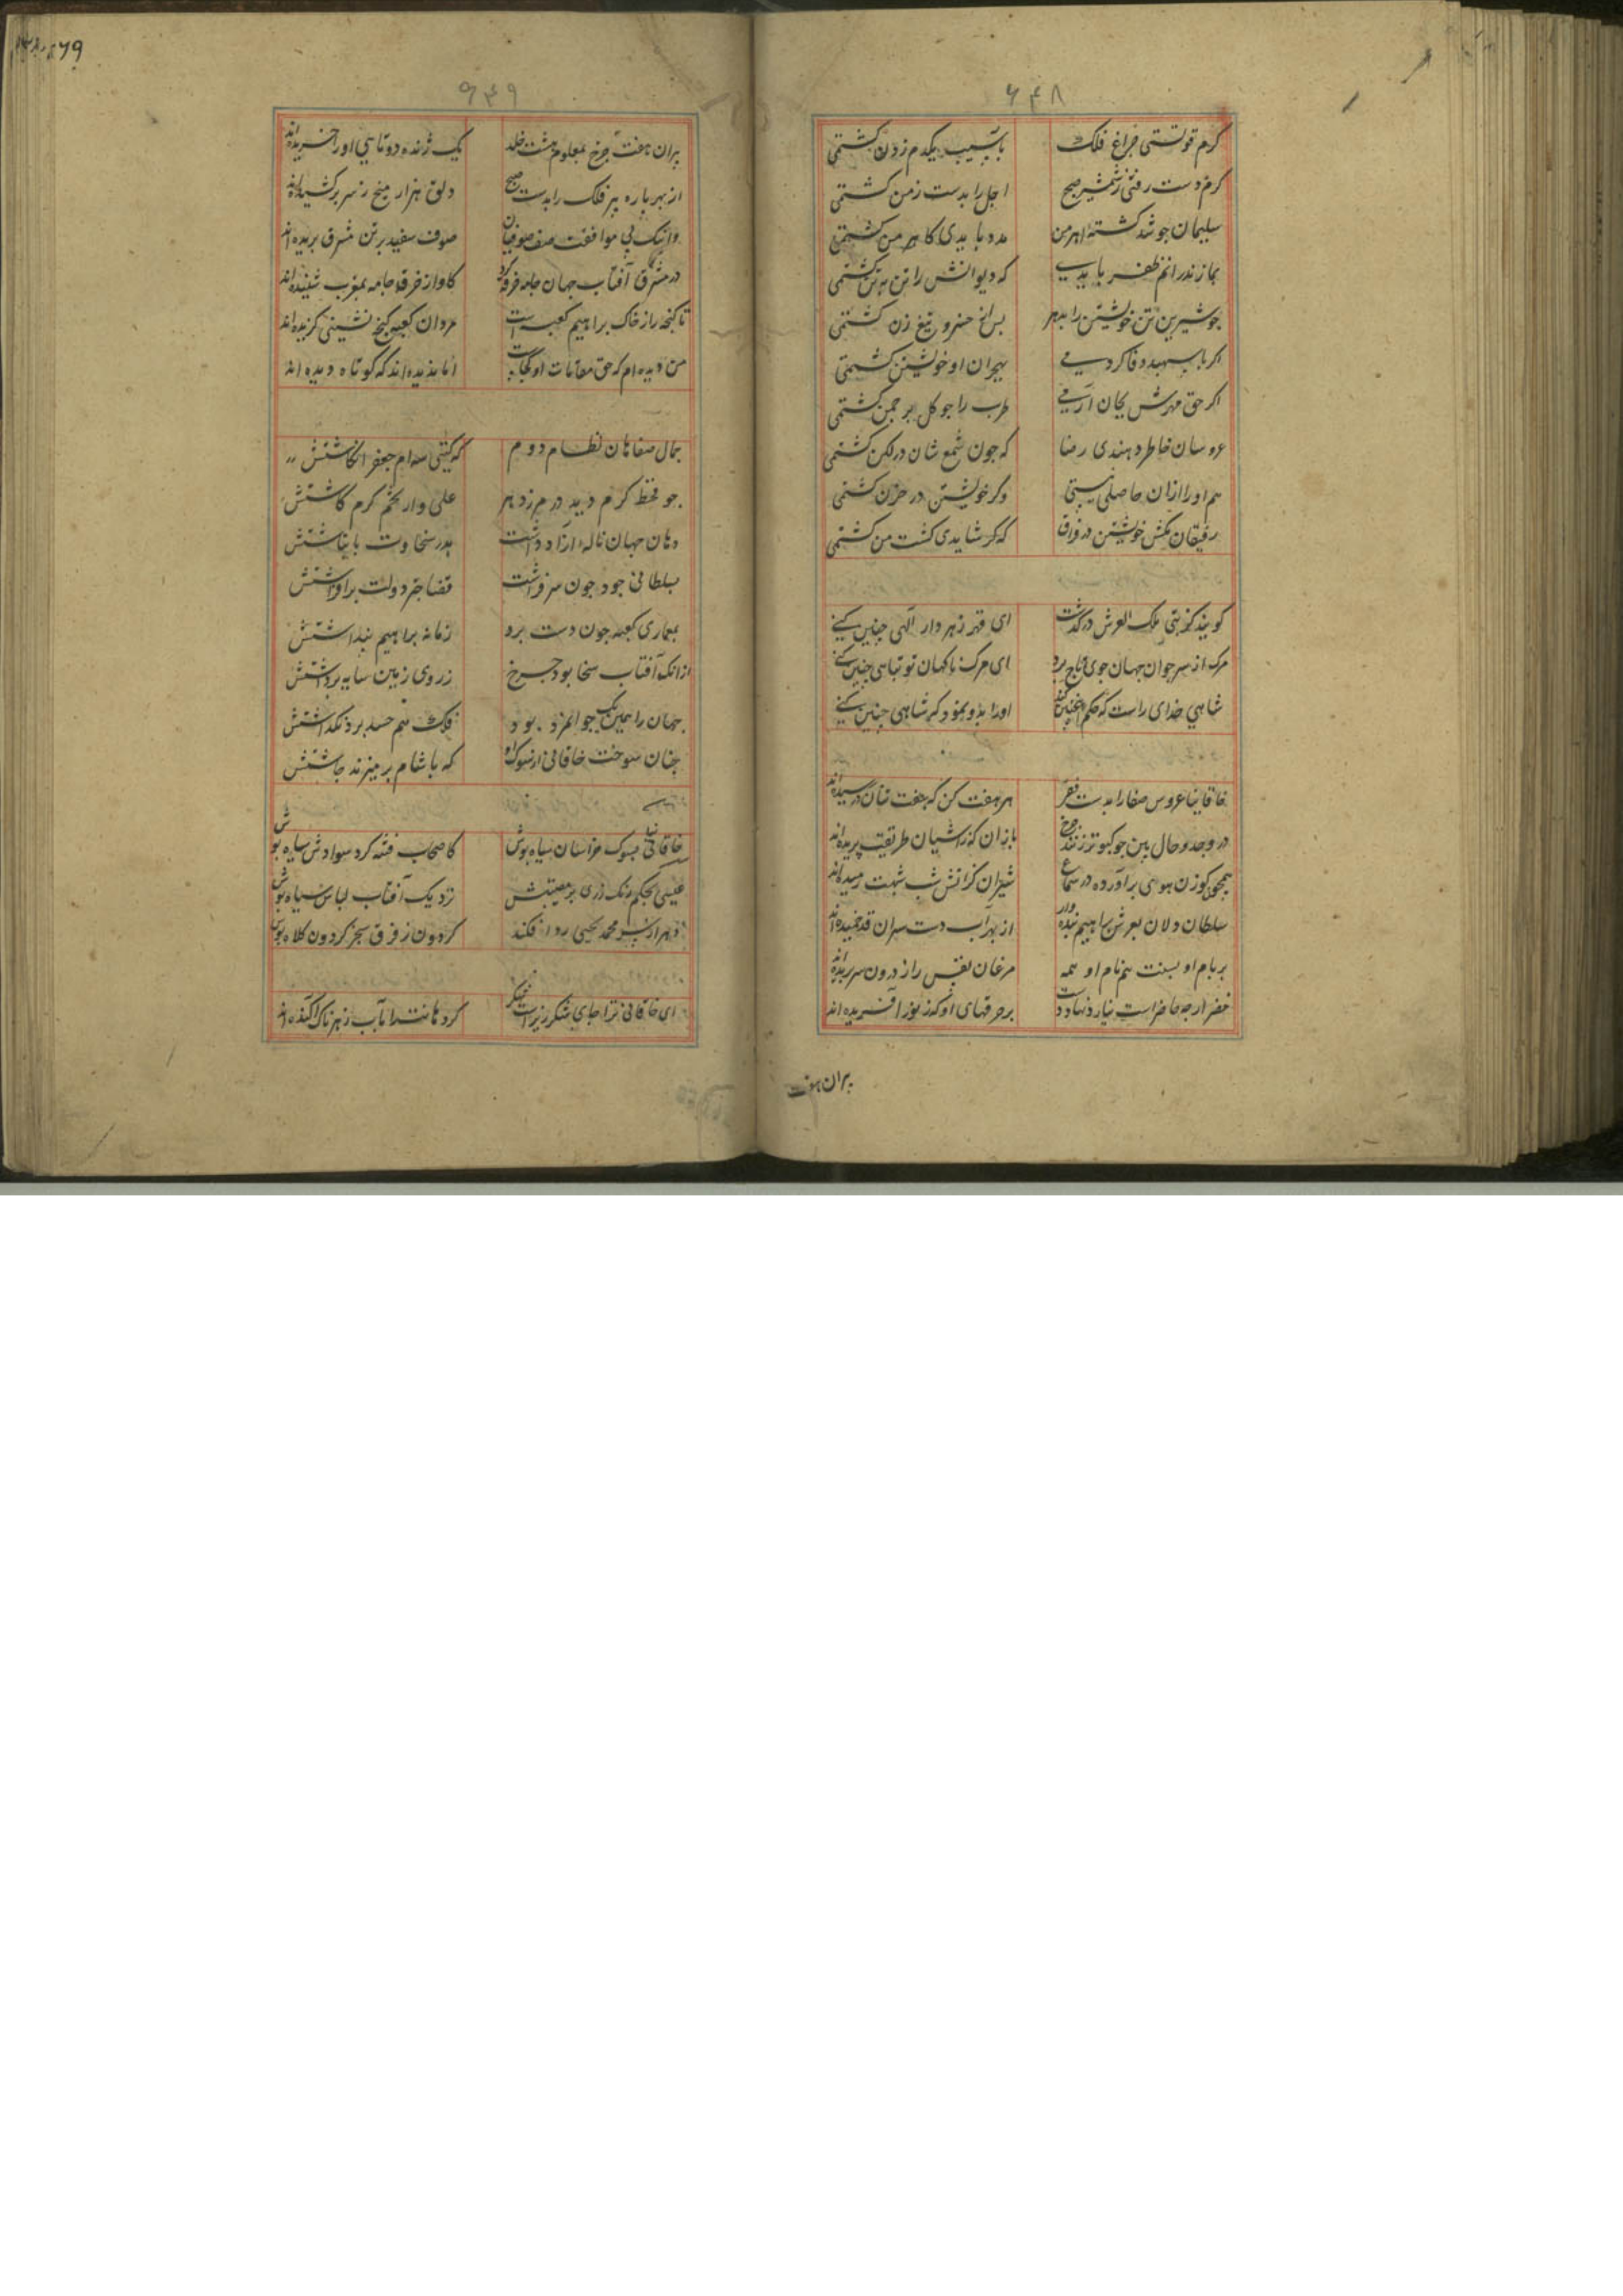 ۶۴۸
کرم قوتستی چراغ فلک بآسیب یکدم زدن کشتمی
کرم دست رفتی بشمشیر صبح اجل را بدست زمن کشتمی
سلیمان چو شد کشتهٔ اهرمن مدد بایدی کاهرمن کشتمی
بمازندرانم ظفر بایدی که دیوانش را تن بتن کشتمی
جو شیرین تن خویشتن را بدهر پس از خسرو تیغ زن کشتمی
اکر با سپهبد وفا کردمی بهجران او خویشتن کشتمی
اکر حق مهرش بجان آرمی طرب را جو کل بر جمن کشتمی
عروسان خاطر دهندی رضا که جون شمع شان در لکن کشتمی
هم او را ازان حاصلی نیستی وکر خویشتن در حزن کشتمی
رفیقان مکش خویشتن در فراق که کر شایدی کشت من کشتمی
کویند کز تبی ملک العرش درکذشت ای قهر زهردار الهی جنین کنی
مرک از سر جوان جهان جوی تاج برد ای مرک ناکهان تو تباهی جنین کنی
شاهی خدای راست که حکم اینجنین کند او را بدو نمود که شاهی جنین کنی
خاقانیا عروس صفا را بدست فقر هر هفت کن که هفت تنان در رسیده‌اند
در وجد و حال بین جو کبوتر زنند جرخ بازان کز آشیان طریقت پریده‌اند
همجون کوزن هوی برآورده در سماع شیران کز آتش شب شبهت رمیده‌اند
سلطان دلان بعرش براهیم بنده وار از بهر آب دست سران قد خمیده‌اند
بر بام او بسنت هم نام او همه مرغان نفس را ز درون سر بریده‌اند
خضر ارجه حاضر است نیارد نهاد دست بر خرقهای او که ز نور آفریده‌اند
بران هفت
۶۴۹
بران هفت جرخ بمعلوم هشت خلد یک ژنده دوتایی او را خریده‌اند
از بهر پاره پیر فلک را بدست صبح دلق هزار میخ ز سر برکشیده‌اند
وانیک پی موافقت صف صوفیان صوف سفید بر تن مشرق بریده‌اند
در مشرق آفتاب جهان جامه خرقه کرد کاواز خرقه جامه بمغرب شنیده‌اند
تا کنجه را ز خاک براهیم کعبه است مردان کعبه کنج نشینی کزیده‌اند
من دیده‌ام که حق مقامات او کجاست اما ندیده‌اند که کوتاه دیده‌اند
جمال صفاهان نظام دوم که کیتی سوم جعفر انکاشتش
جو قحط کرم دید در مرز دهر علی وار تخم کرم کاشتش
دهان جهان ناله آزاد داشت بدر سخاوت بانباشتش
بسلطانی جود جون سر فراشت قضا جتر دولت برافراشتش
بمعماری کعبه جون دست برد زمانه براهیم پنداشتش
ازانک آفتاب سخا بود جرخ ز روی زمین سایه برداشتش
جهان را همین یک جوانمرد بود فلک هم حسد برد نکذاشتش
جنان سوخت خاقانی از سوک او که با شام برمیزند جاشتش
خاقانیا بسوک خراسان سیاه بوش کاصحاب فتنه کرد سوادش سیاه بوش
عیسی بحکم رنک رزی بر مصیبتش نزدیک آفتاب لباس سیاه بوش
دهر از سر محمد یحیی ردا فکند کردون ز فرق سنجر کردون کلاه بوش
ای خاقانی ترا جای شکر ریز است شکر کر دهانت را بآب زهرناک آکنده‌اند